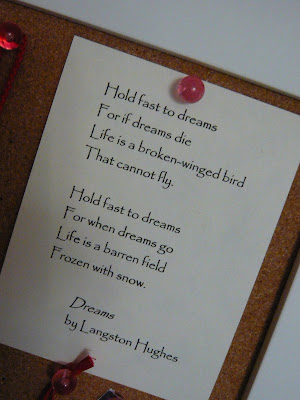 Hold fast to dreams
For if dreams die
Life is a broken-winged bird
That cannot fly.
Hold fast to dreams
For when dreams go
Life is a barren field
Frozen with snow.
Dreams
by Langston Hughes